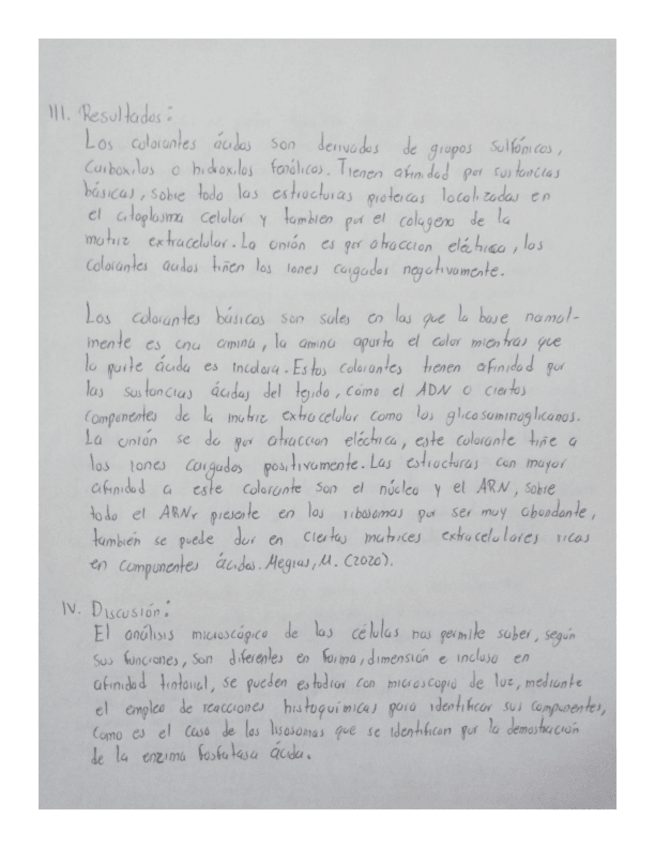 III. Resultados:
Los colorantes ácidos son derivados de grupos sulfónicos,
Carboxilos o hidroxilos fenólicos. Tienen afinidad por sustancias
básicas, sobre todo las estructuras proteicas localizadas en
el citoplasma celular y tambien por el colageno de la
matriz extracelular. La unión es por atraccion eléctrica, los
colorantes acidos tiñen los iones cargados negativamente.
Los colorantes básicos son sales en las que la base normal-
mente es una amina, la amina aporta el color mientras que
la parte ácida es incolora. Estos colorantes tienen afinidad por
las sustancias ácidas del tejido, como el ADN o ciertos
Componentes de la matriz extracelular como los glicosaminoglicanos.
La unión se da por atraccion eléctrica, este colorante tiñe a
los iones cargados positivamente. Las estructuras con mayor
afinidad a este colorante son el núcleo y el ARN, sobre
todo el ARNr presente en los ribosomas por ser muy abundante,
también se puede dar en ciertas matrices extracelulares ricas
en componentes ácidos. Megias, M. (2020).
IV. Discusión:
El análisis microscópico de las células nos permite saber, según
sus funciones, son diferentes en forma, dimensión e incluso en
afinidad tintorial, se pueden estudiar con microscopio de luz, mediante
el empleo de reacciones histoquímicas para identificar sus componentes,
Como es el caso de los lisosomas que se identifican por la demostración
de la enzima fosfatasa ácida.